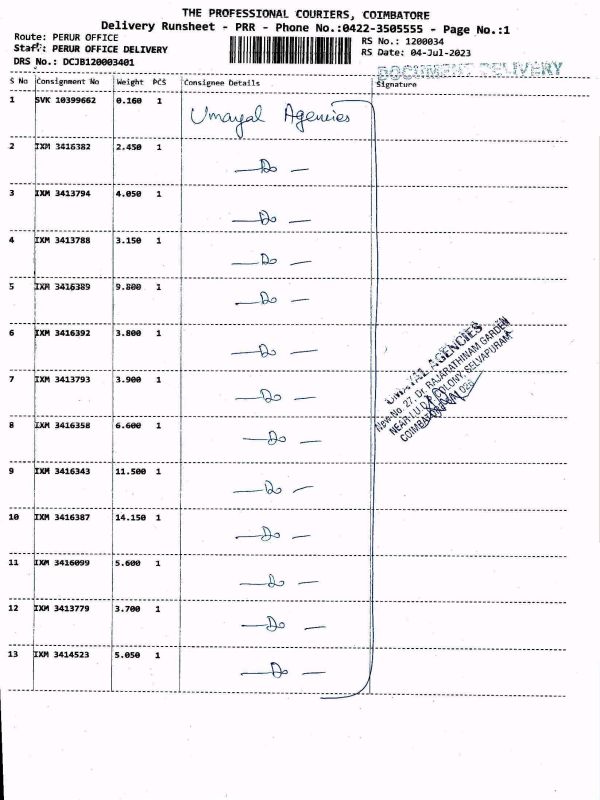 THE PROFESSIONAL COURIERS, COIMBATORE
Delivery Runsheet - PRR - Phone No.:0422-3505555 - Page No.:1
Route: PERUR OFFICE
RS No.: 1200034
Staff: PERUR OFFICE DELIVERY
RS Date: 04-Jul-2023
DRS No.: DCJB120003401
DOCUMENT DELIVERY
S No Consignment No Weight PCS Consignee Details Signature
1 SVK 10399662 0.160 1 Umayal Agencies
2 IXM 3416382 2.450 1 — Do —
3 IXM 3413794 4.050 1 — Do —
4 IXM 3413788 3.150 1 — Do —
5 IXM 3416389 9.800 1 — Do —
6 IXM 3416392 3.800 1 — Do —
7 IXM 3413793 3.900 1 — Do —
8 IXM 3416358 6.600 1 — Do —
9 IXM 3416343 11.500 1 — Do —
10 IXM 3416387 14.150 1 — Do —
11 IXM 3416099 5.600 1 — Do —
12 IXM 3413779 3.700 1 — Do —
13 IXM 3414523 5.050 1 — Do —
UMAYAL AGENCIES
New-No. 27, Dr. RAJARATHINAM GARDEN
NEAR-LU COLONY, SELVAPURAM